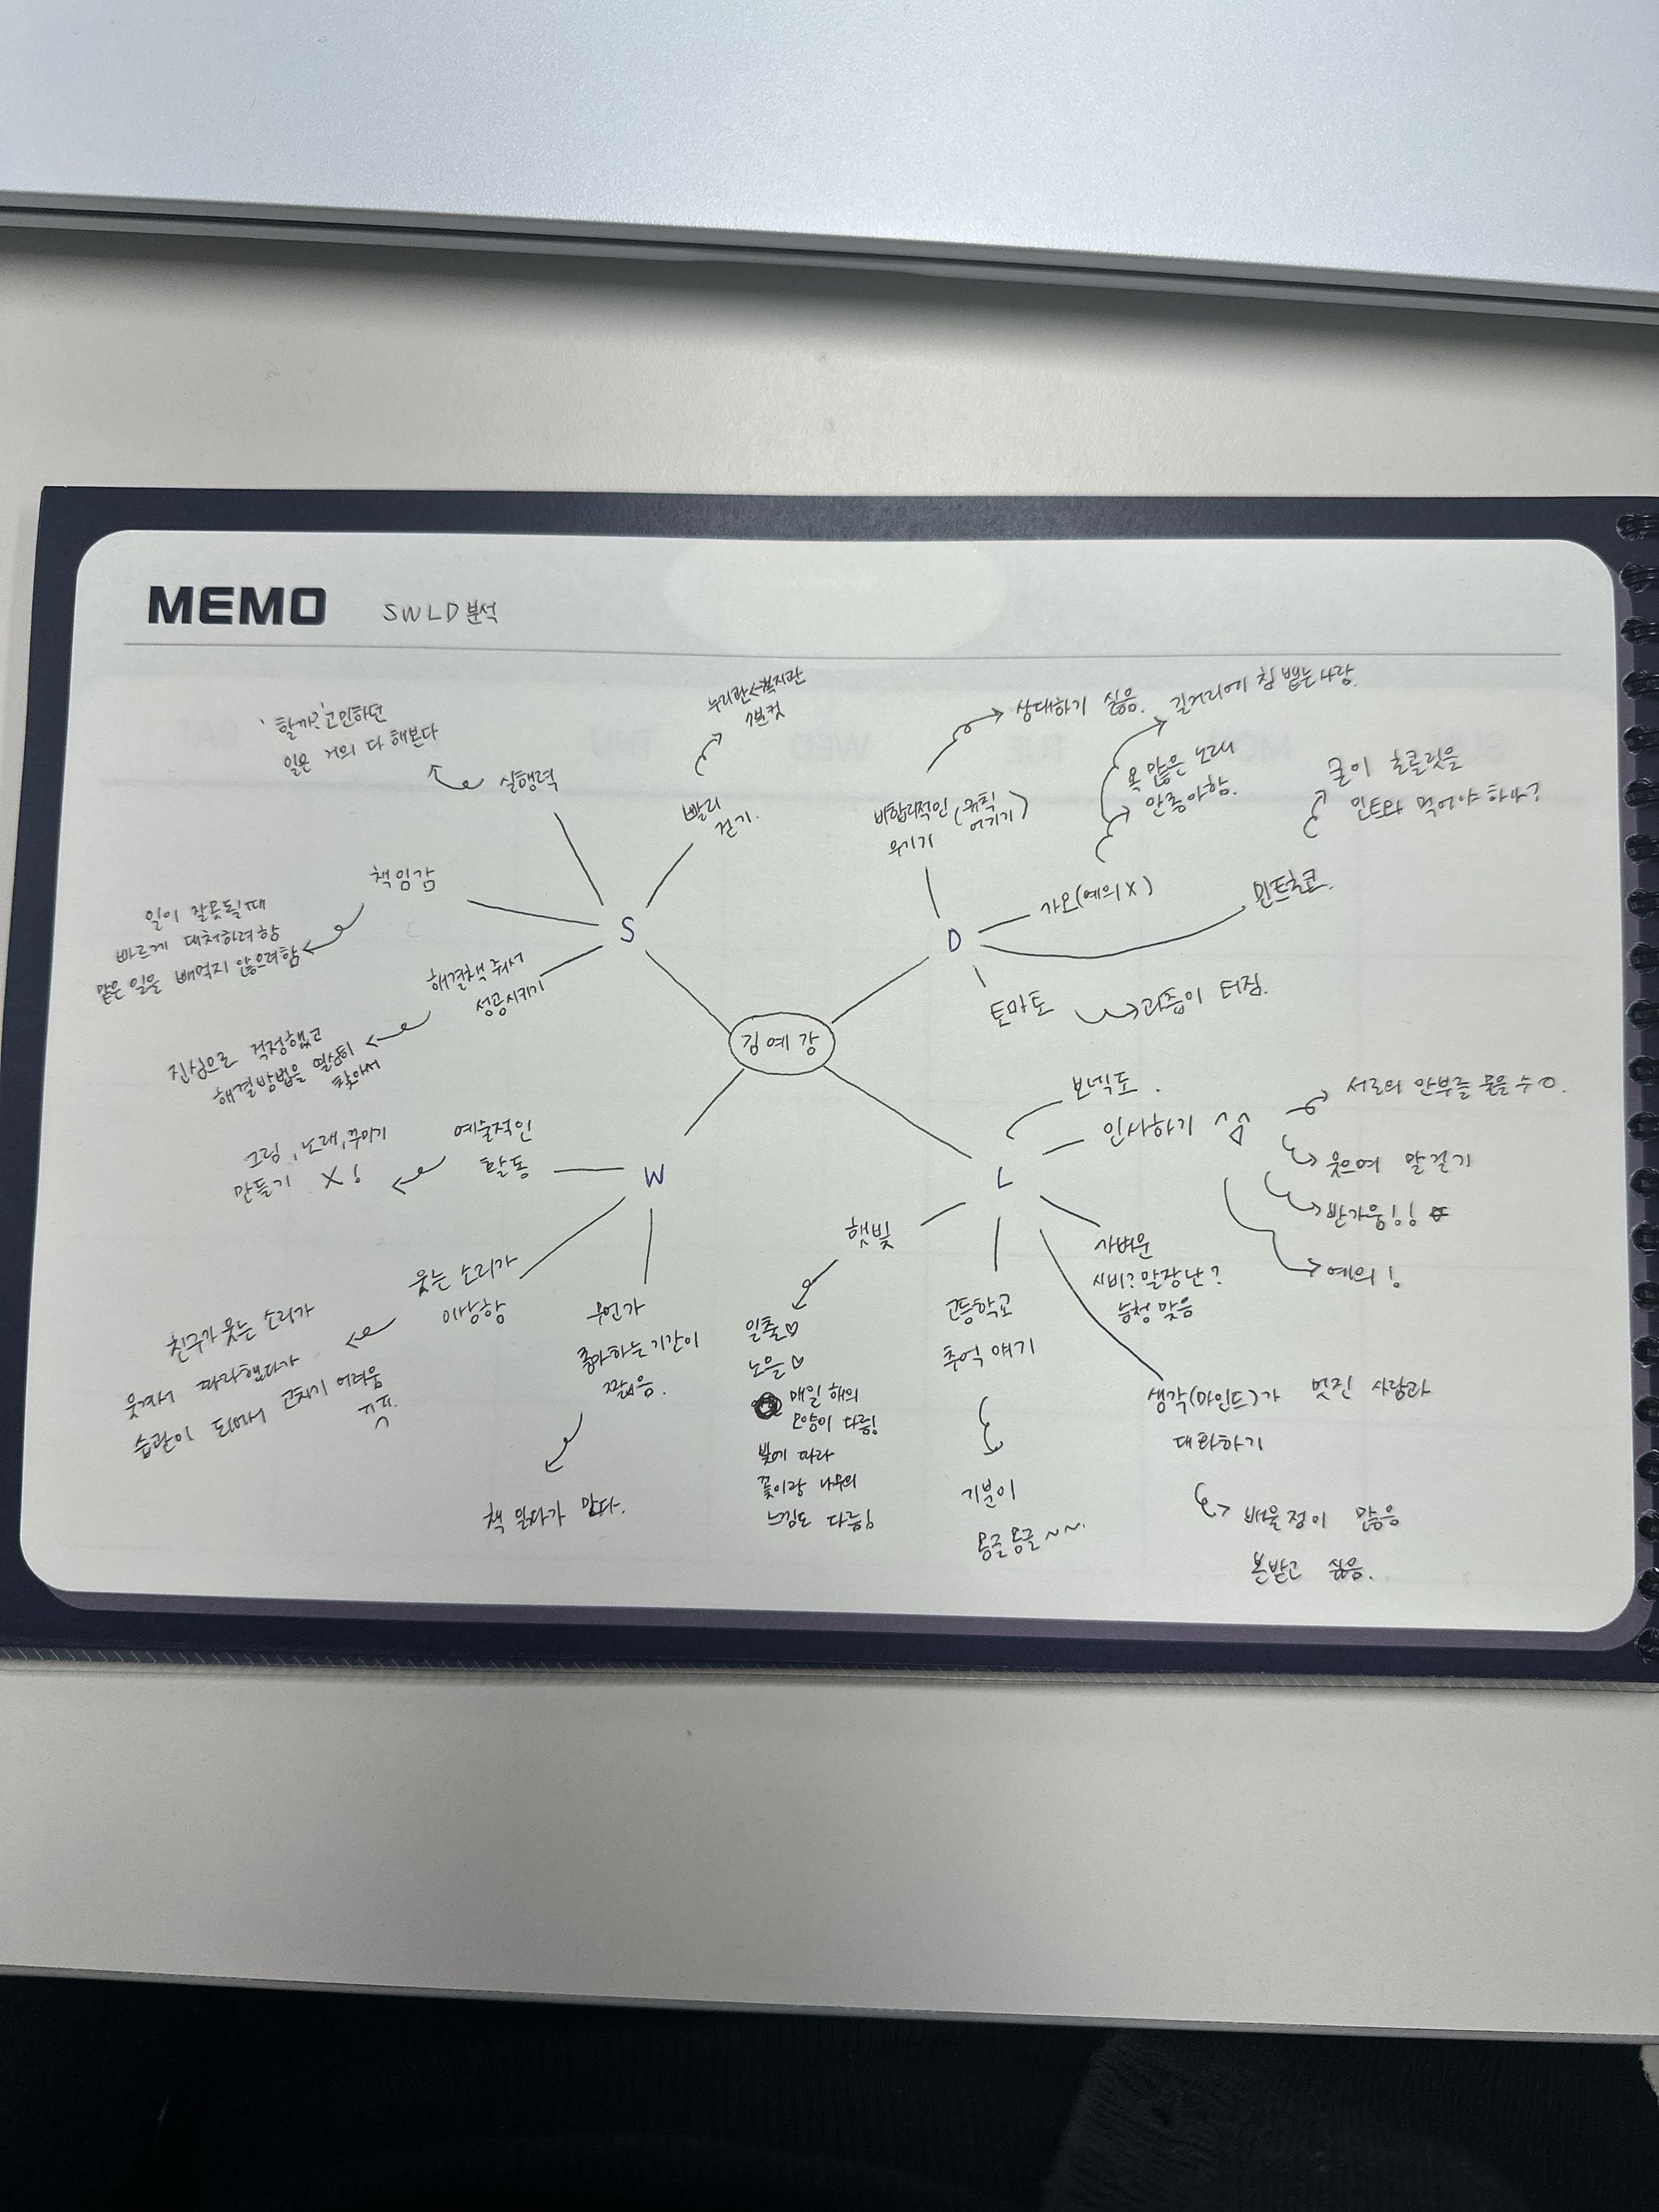 MEMO
SWLD 분석
'할까?' 고민하던
일은 거의 다 해본다
실행력
누리관<->복지관
7분컷
빨리
걷기.
책임감
일이 잘못될 때
바르게 대처하려함
맡은 일을 빼먹지 않으려함
S
해결책 줘서
성공시키기
진심으로 걱정했고
해결방법을 열심히
찾아서
상대하기 싫음.
비합리적인 (규칙
어기기)
우기기
길거리에 침 뱉는 사람.
욕 많은 노래
안좋아함.
가오(예의X)
굳이 초콜릿을
민트와 먹어야 하나?
민트초코.
D
토마토
과즙이 터짐.
김예강
예술적인
활동
그림, 노래, 꾸미기
만들기 X!
W
웃는 소리가
이상함
친구가 웃는 소리가
웃겨서 따라했다가
습관이 되어서 고치기 어려움
ㅠㅠ.
무언가
좋아하는 기간이
짧음.
책 읽다가 만다.
L
보넥도.
인사하기 ^^
서로의 안부를 물을 수 O.
웃으며 말걸기
반가움!!
예의!
햇빛
일출♡
노을♡
매일 해의
모양이 다름!
빛에 따라
꽃이랑 나무의
느낌도 다름!
고등학교
추억 얘기
기분이
몽글몽글~~.
가벼운
시비? 말장난?
생각(마인드)가 멋진 사람과
대화하기
배울점이 많음
본받고 싶음.